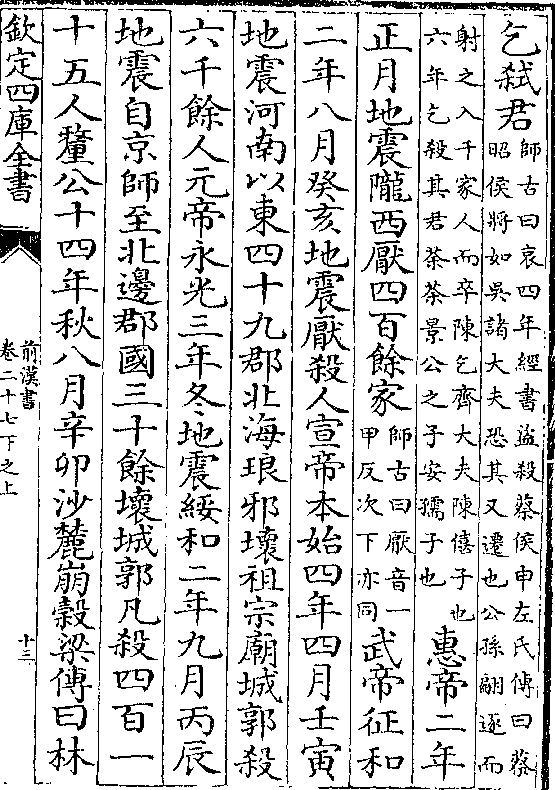 乞弑君師古曰哀四年經書盜殺蔡侯申左氏傳曰蔡昭侯將如吳諸大夫恐其又遷也公孫翩逐而
射之入于家人而卒陳乞齊大夫陳僖子也六年乞殺其君荼荼景公之子安孺子也惠帝二年
正月地震隴西厭四百餘家師古曰厭音一甲反次下亦同武帝征和
二年八月癸亥地震厭殺人宣帝本始四年四月壬寅
地震河南以東四十九郡北海琅邪壞祖宗廟城郭殺
六千餘人元帝永光三年冬地震綏和二年九月丙辰
地震自京師至北邊郡國三十餘壞城郭凡殺四百一
十五人釐公十四年秋八月辛卯沙麓崩穀梁傳曰林
欽定四庫全書
前漢書
卷二十七下之上
十三